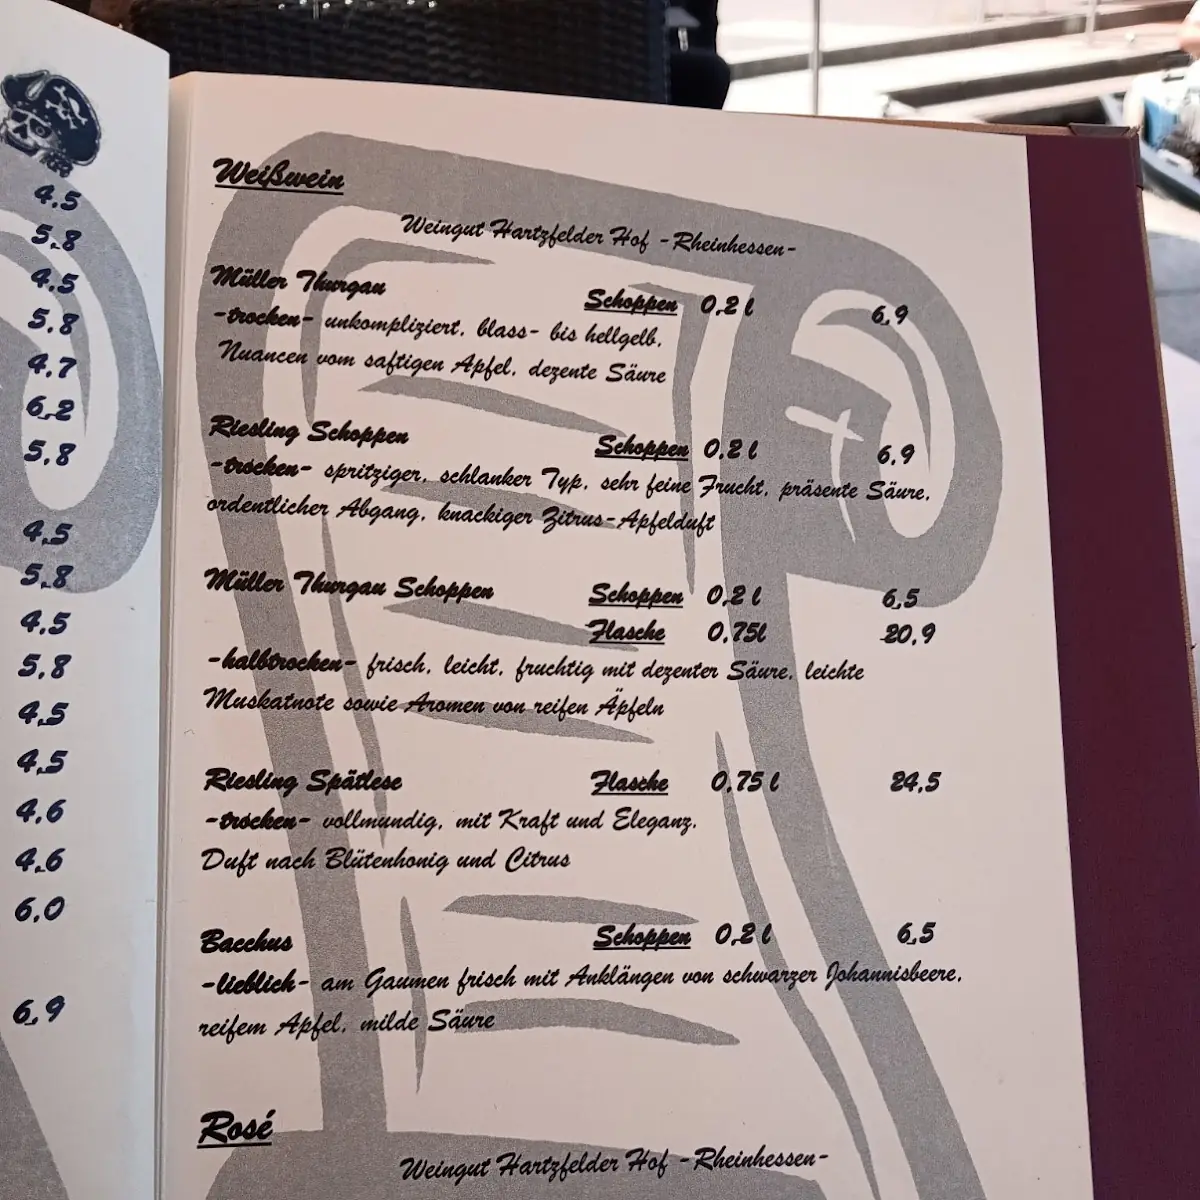 4,5
5,8
4,5
5,8
4,7
6,2
5,8
4,5
5,8
4,5
5,8
4,5
4,5
4,6
4,6
6,0
6,9
Weißwein
Weingut Hartzfelder Hof -Rheinhessen-
Müller Thurgau Schoppen 0,2 l 6,9
-trocken- unkompliziert, blass- bis hellgelb,
Nuancen vom saftigen Apfel, dezente Säure
Riesling Schoppen Schoppen 0,2 l 6,9
-trocken- spritziger, schlanker Typ, sehr feine Frucht, präsente Säure,
ordentlicher Abgang, knackiger Zitrus-Apfelduft
Müller Thurgau Schoppen Schoppen 0,2 l 6,5
Flasche 0,75l 20,9
-halbtrocken- frisch, leicht, fruchtig mit dezenter Säure, leichte
Muskatnote sowie Aromen von reifen Äpfeln
Riesling Spätlese Flasche 0,75 l 24,5
-trocken- vollmundig, mit Kraft und Eleganz,
Duft nach Blütenhonig und Citrus
Bacchus Schoppen 0,2 l 6,5
-lieblich- am Gaumen frisch mit Anklängen von schwarzer Johannisbeere,
reifem Apfel, milde Säure
Rosé
Weingut Hartzfelder Hof -Rheinhessen-